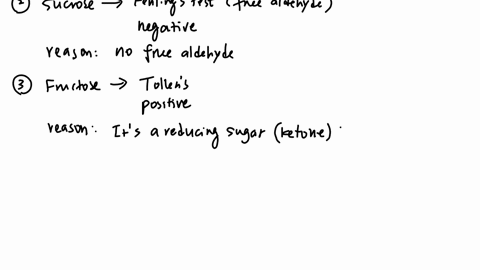 ② Sucrose → Fehling's test (free aldehyde)
negative
reason: no free aldehyde
③ Fructose → Tollen's
positive
reason: It's a reducing sugar (ketone)